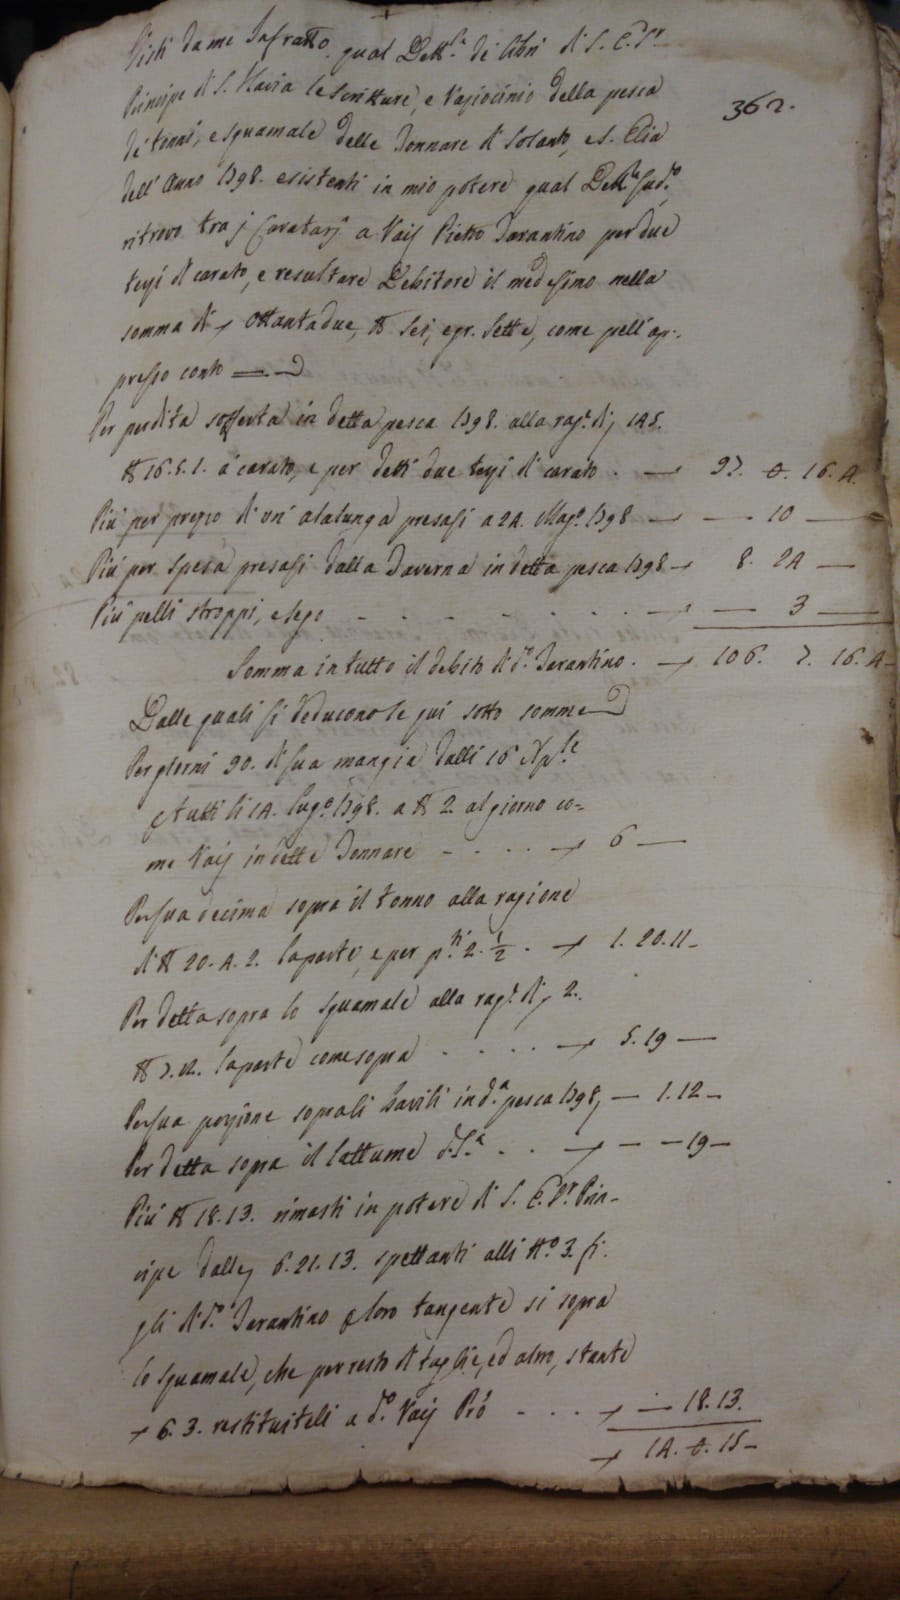 Visti da me Infratto. qual Dett.e de libri di S. E. Sr.
Principe di S. Flavia le scritture, e Raziocinio della pesca
de' tonni, e squamale delle Tonnare di Solanto, e S. Elia
dell' Anno 1798. esistenti in mio potere qual Dett.e sud.o,
ritrovo tra j Caratarj a Rais Pietro Tarantino per due
terzi di carato, e resultare Debitore il medesimo nella
somma di ottantadue, tt sei, e gr. sette, come pell' ap-
presso conto
Per perdita sofferta in detta pesca 1798. alla rag.e di 145.
tt 16. 5. 1. a carato, e per detti due terzi di carato . 97. 0. 16. 4.
Più per prezzo di un' alalunga presasi a 24. Mag.o 1798 — 10 —
Più per spesa presasi dalla Taverna in detta pesca 1798 8. 24 —
Più pelli stroppi, e sego . . . . . — 3 —
Somma in tutto il debito di d.o Tarantino . 106. 7. 16. 4
Dalle quali si deducono le qui sotto somme
Per giorni 90. di sua mangia dalli 16 Aple
a tutti li 14. Lug.o 1798. a tt 2. al giorno co-
me Rais in dette Tonnare - . . . . 6 —
Per sua decima sopra il tonno alla ragione
di tt 20. 4. 2. la parte, e per p.ti 2. 1/2 . 1. 20. 11 -
Per detta sopra lo squamale alla rag.e di 2.
tt 7. 12. la parte come sopra . . . . 5. 19 —
Per sua porzione sopra li bavili in d.a pesca 1798, — 1. 12 -
Per detta sopra il lattume . . — — 19 —
Più tt 18. 13. rimasti in potere di S. E. Sr. Prin-
cipe dalle 6. 21. 13. spettanti alli n.o 3. fi-
gli di d.o Tarantino loro tangente si sopra
lo squamale, che per resto di taglie, ed altro, stante
6. 3. restituiteli a d.o Rais Prò - . . . — 18. 13.
14. 0. 15 -
362.